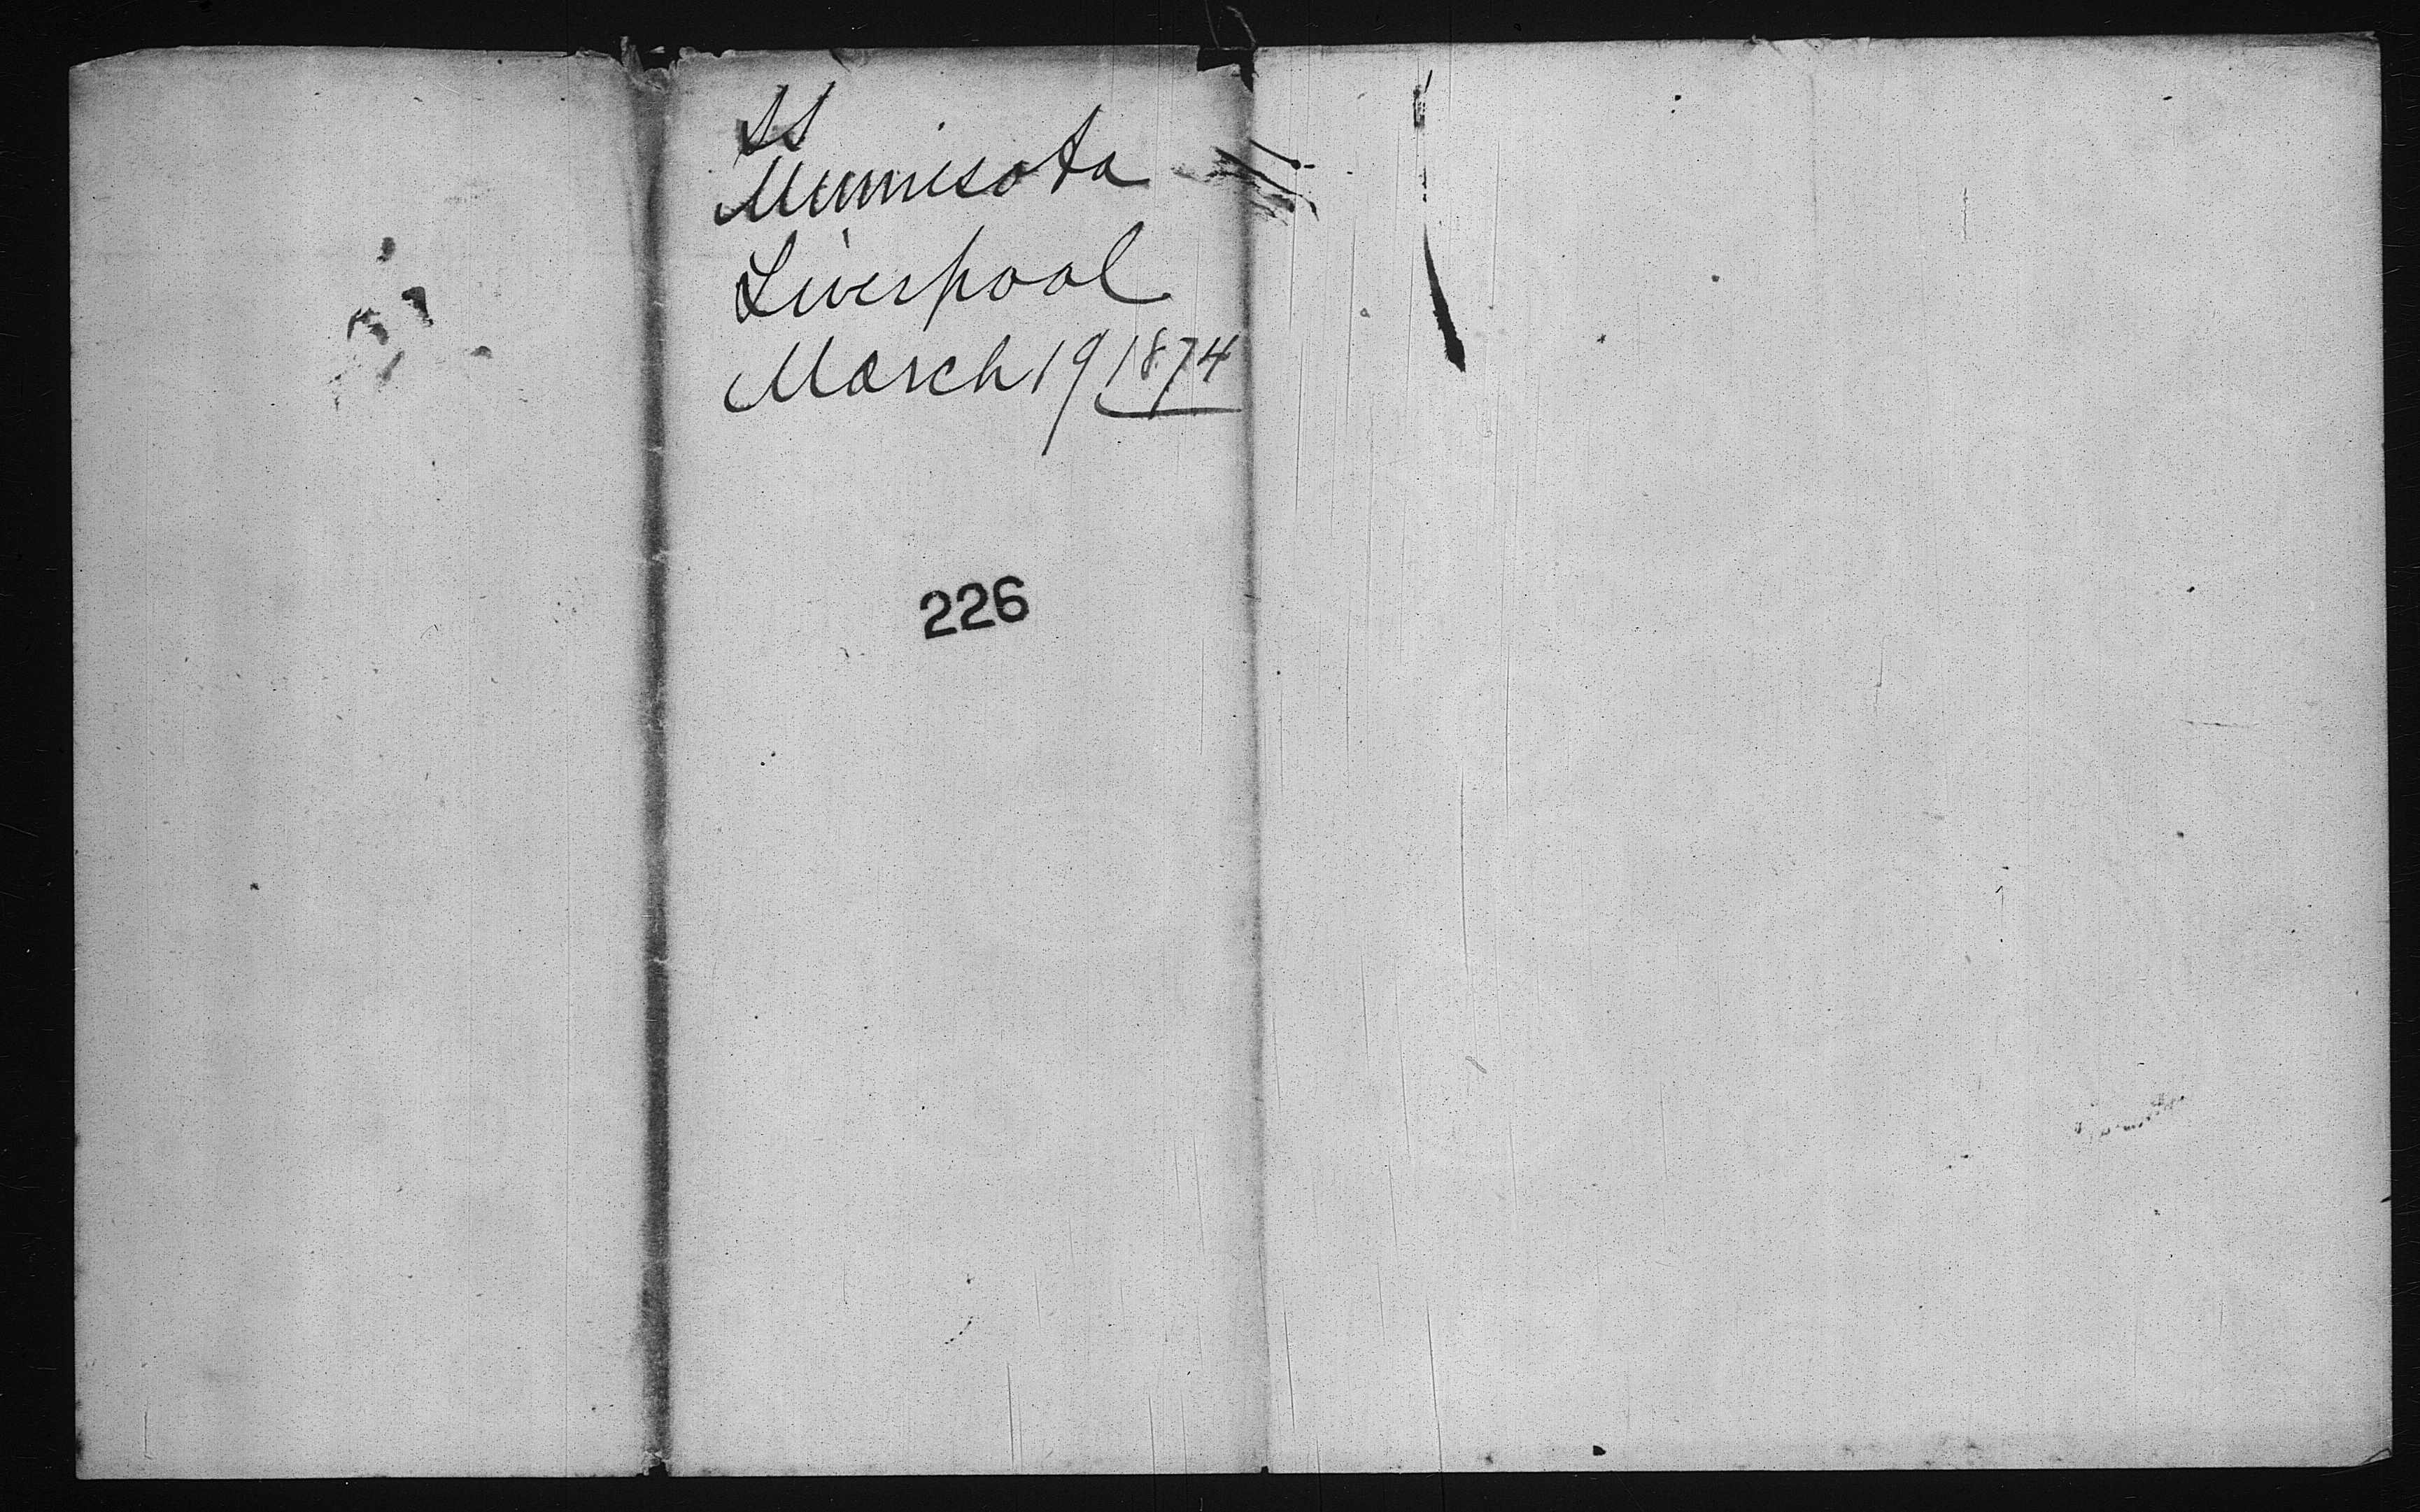 SS
Minnesota
Liverpool
March 19 1874
226